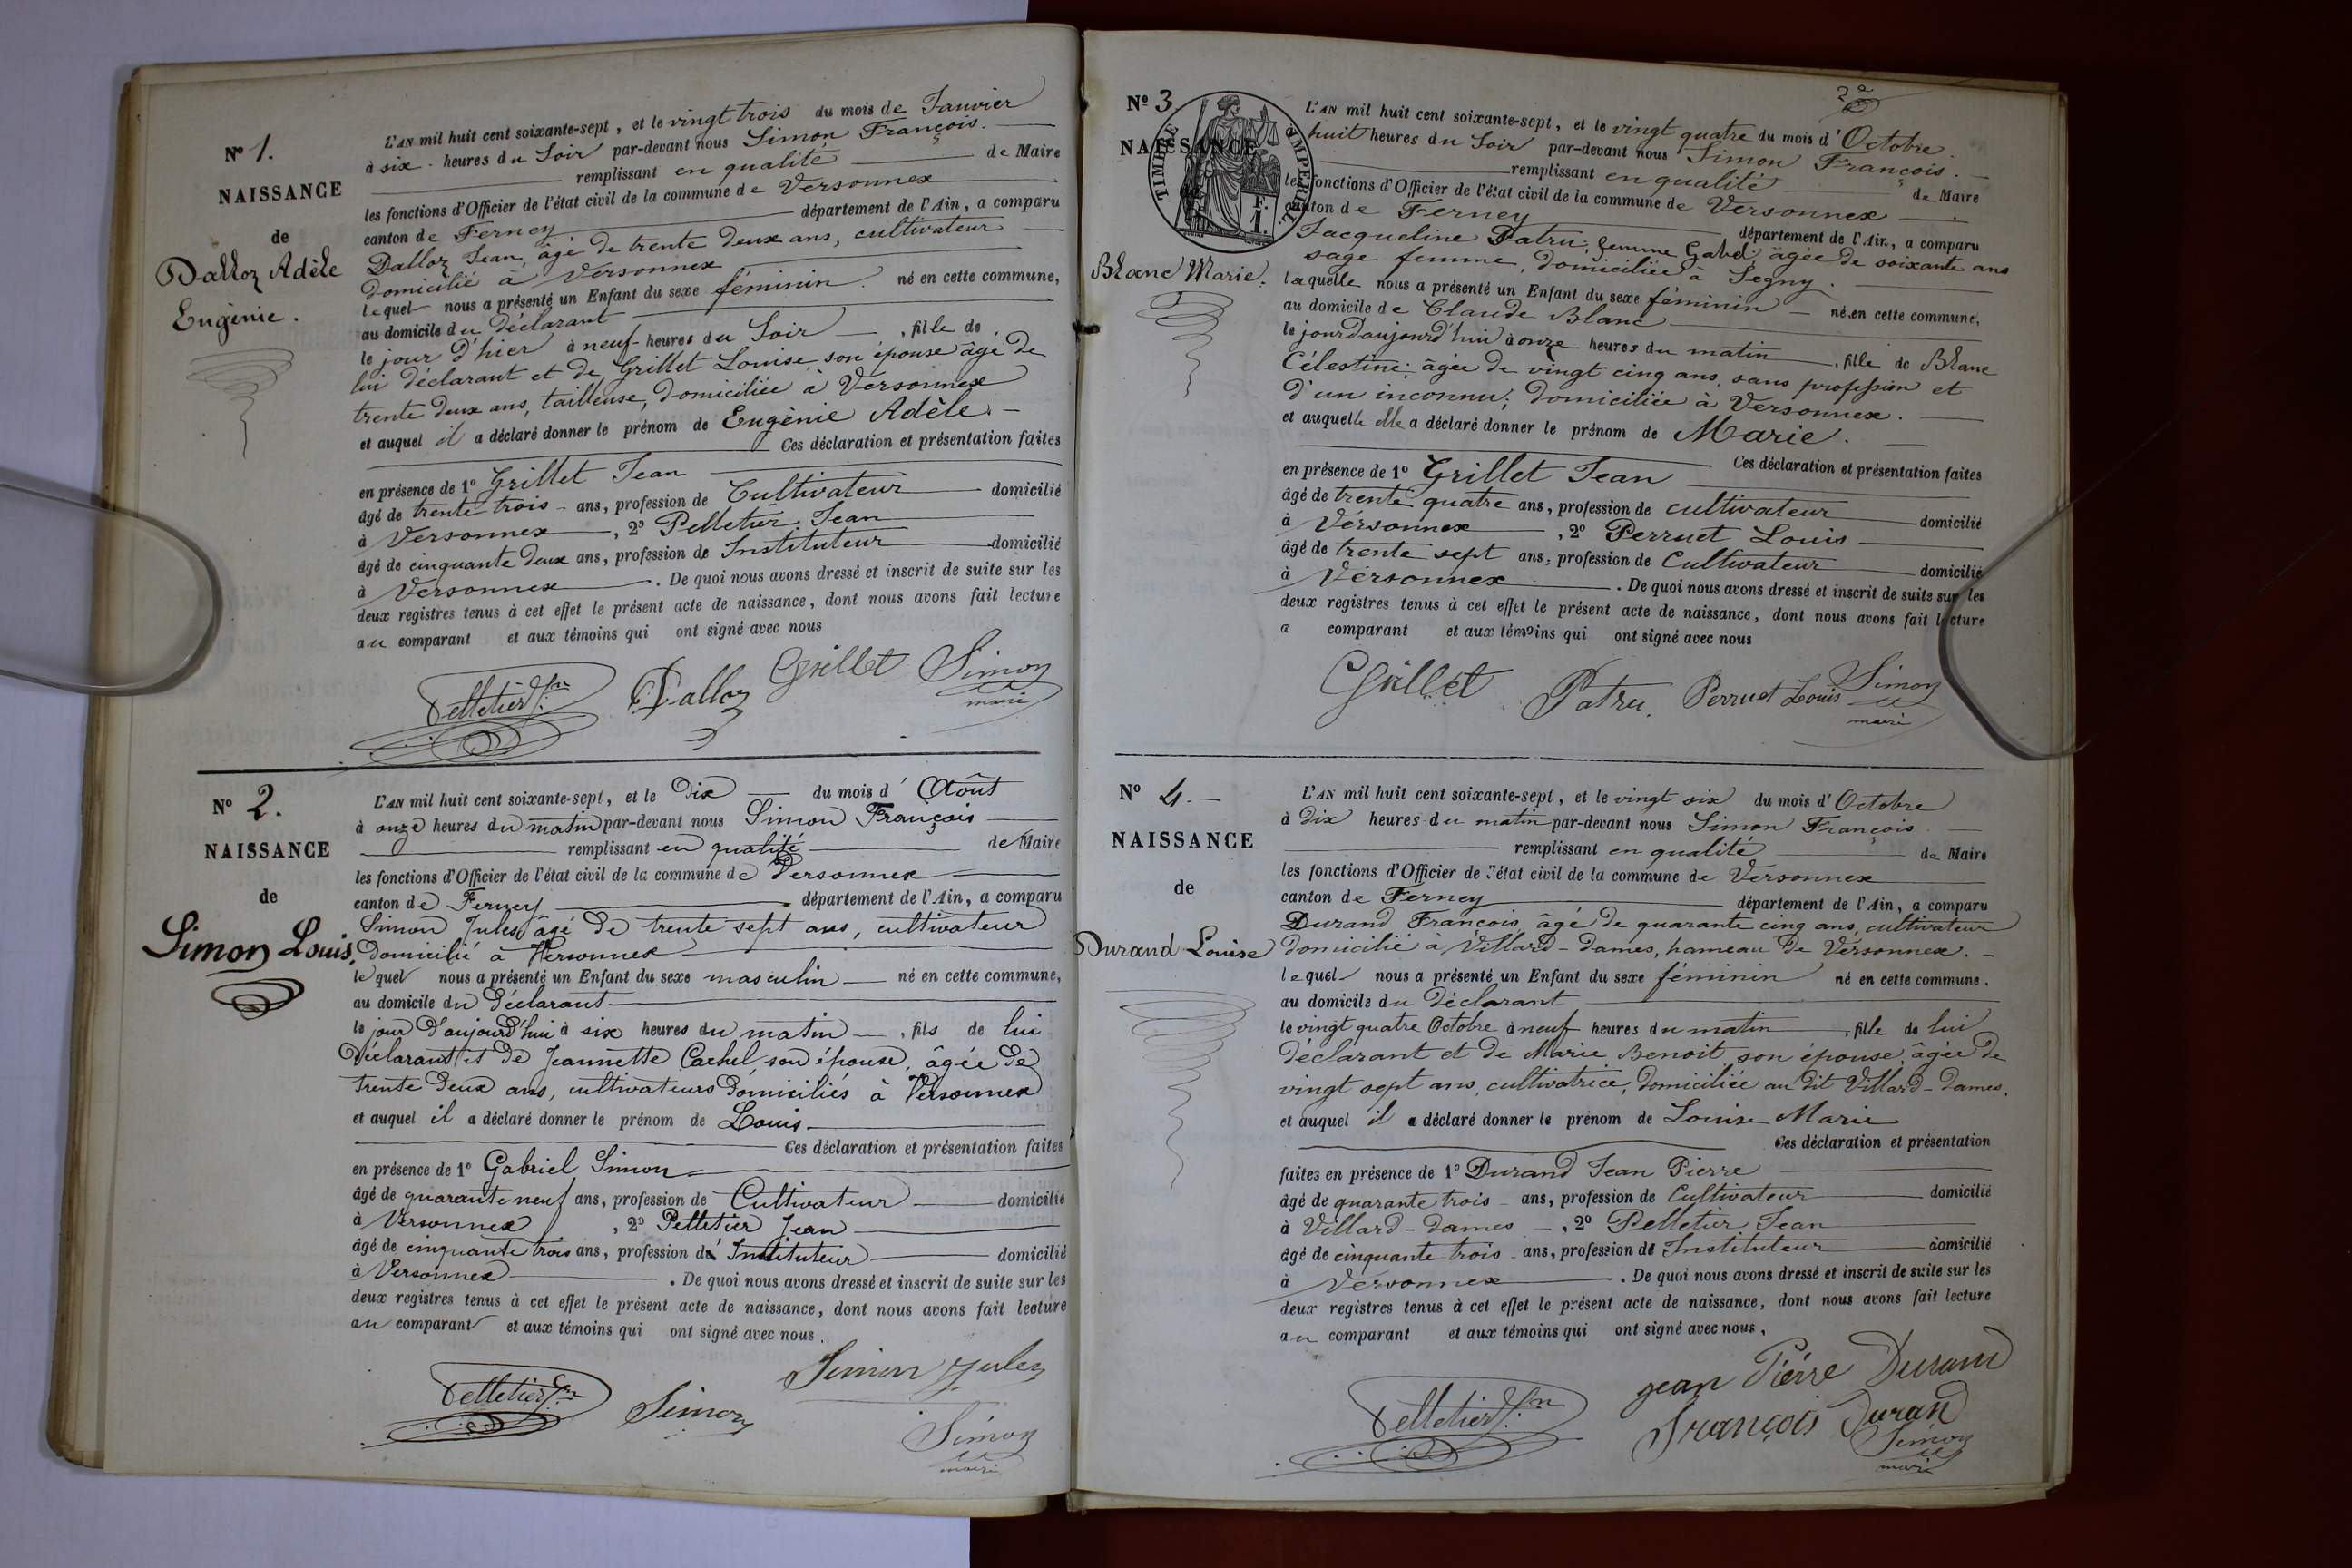 N° 1.
NAISSANCE
de
Dalloz Adèle
Eugénie.
L'AN mil huit cent soixante-sept, et le vingt trois du mois de Janvier
à six heures du Soir par-devant nous Simon François.
remplissant en qualité de Maire
les fonctions d'Officier de l'état civil de la commune de Versonnex
canton de Ferney département de l'Ain, a comparu
Dalloz Jean, âgé de trente deux ans, cultivateur
domicilié à Versonnex
lequel nous a présenté un Enfant du sexe féminin. né en cette commune,
au domicile du déclarant
le jour d'hier à neuf heures du Soir, fille de
lui déclarant et de Grillet Louise, son épouse âgé de
trente deux ans, tailleuse, domiciliée à Versonnex
et auquel il a déclaré donner le prénom de Eugénie Adèle.
Ces déclaration et présentation faites
en présence de 1° Grillet Jean
âgé de trente trois ans, profession de Cultivateur domicilié
à Versonnex, 2° Pelletier Jean
âgé de cinquante deux ans, profession de Instituteur domicilié
à Versonnex. De quoi nous avons dressé et inscrit de suite sur les
deux registres tenus à cet effet le présent acte de naissance, dont nous avons fait lecture
au comparant et aux témoins qui ont signé avec nous
Pelletier Jn Dalloz Grillet Simon
maire
N° 2.
NAISSANCE
de
Simon Louis.
L'AN mil huit cent soixante-sept, et le dix du mois d'Août
à onze heures du matin par-devant nous Simon François
remplissant en qualité de Maire
les fonctions d'Officier de l'état civil de la commune de Versonnex
canton de Ferney département de l'Ain, a comparu
Simon Jules, âgé de trente sept ans, cultivateur
domicilié à Versonnex
lequel nous a présenté un Enfant du sexe masculin né en cette commune,
au domicile du déclarant
le jour d'aujourd'hui à six heures du matin, fils de lui
déclarant et de Jeannette Cachel, son épouse, âgée de
trente deux ans, cultivateurs domiciliés à Versonnex
et auquel il a déclaré donner le prénom de Louis
Ces déclaration et présentation faites
en présence de 1° Gabriel Simon
âgé de quarante neuf ans, profession de Cultivateur domicilié
à Versonnex, 2° Pelletier Jean
âgé de cinquante trois ans, profession de Instituteur domicilié
à Versonnex. De quoi nous avons dressé et inscrit de suite sur les
deux registres tenus à cet effet le présent acte de naissance, dont nous avons fait lecture
au comparant et aux témoins qui ont signé avec nous.
Simon Jules
Pelletier Jn Simon
Simon
maire
2e
N° 3
NAISSANCE
TIMBRE IMPÉRIAL
1 F.
Blanc Marie.
L'AN mil huit cent soixante-sept, et le vingt quatre du mois d'Octobre
huit heures du Soir par-devant nous Simon François.
remplissant en qualité de Maire
les fonctions d'Officier de l'état civil de la commune de Versonnex
canton de Ferney département de l'Ain, a comparu
Jacqueline Patru, femme Gabel, âgée de soixante ans
sage femme, domiciliée à Segny.
laquelle nous a présenté un Enfant du sexe féminin né en cette commune,
au domicile de Claude Blanc
le jour d'aujourd'hui à onze heures du matin, fille de Blanc
Célestine; âgée de vingt cinq ans, sans profession et
d'un inconnu; domiciliée à Versonnex.
et auquelle elle a déclaré donner le prénom de Marie.
Ces déclaration et présentation faites
en présence de 1° Grillet Jean
âgé de trente quatre ans, profession de cultivateur domicilié
à Versonnex, 2° Perruet Louis
âgé de trente sept ans, profession de Cultivateur domicilié
à Versonnex. De quoi nous avons dressé et inscrit de suite sur les
deux registres tenus à cet effet le présent acte de naissance, dont nous avons fait lecture
a comparant et aux témoins qui ont signé avec nous
Grillet Patru. Perruet Louis Simon
maire
N° 4.
NAISSANCE
de
Durand Louise
L'AN mil huit cent soixante-sept, et le vingt six du mois d'Octobre
à dix heures du matin par-devant nous Simon François
remplissant en qualité de Maire
les fonctions d'Officier de l'état civil de la commune de Versonnex
canton de Ferney département de l'Ain, a comparu
Durand François, âgé de quarante cinq ans, cultivateur
domicilié à Villard-Dames, hameau de Versonnex.
lequel nous a présenté un Enfant du sexe féminin né en cette commune.
au domicile du déclarant
le vingt quatre Octobre à neuf heures du matin, fille de lui
déclarant et de Marie Benoit, son épouse, âgée de
vingt sept ans, cultivatrice, domiciliée au dit Villard-Dames.
et auquel il a déclaré donner le prénom de Louise Marie
Ces déclaration et présentation
faites en présence de 1° Durand Jean Pierre
âgé de quarante trois ans, profession de Cultivateur domicilié
à Villard-Dames, 2° Pelletier Jean
âgé de cinquante trois ans, profession de Instituteur domicilié
à Versonnex. De quoi nous avons dressé et inscrit de suite sur les
deux registres tenus à cet effet le présent acte de naissance, dont nous avons fait lecture
au comparant et aux témoins qui ont signé avec nous.
jean Pierre Durand
Pelletier Jn François Duran
Simon
maire